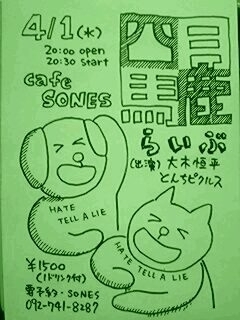 4/1(水)
20:00 open
20:30 start
cafe
SONES
四月
馬鹿
らいぶ
(出演) 大木恒平
とんちピクルス
HATE
TELL A LIE
HATE
TELL A LIE
¥1500
(1ドリンク付)
SONES
092-741-8287